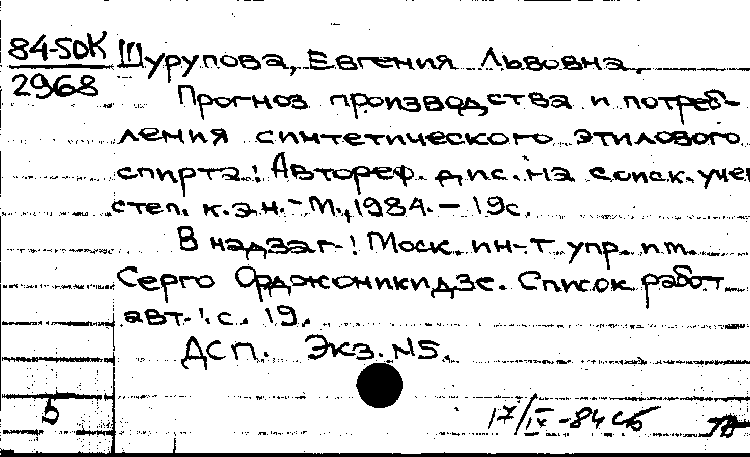 84-5ДК Шурупова, Евгения Львовна.
2968
Прогноз производства и потреб-
ления синтетического этилового
спирта: Автореф. дис. на соиск. учен
степ. к.э.н. - М., 1984. - 19с.
В надзаг.: Моск. ин-т упр. им.
Серго Орджоникидзе. Список работ
авт.: с. 19.
ДСП. Экз. N5.
5 17/IX-84 сб